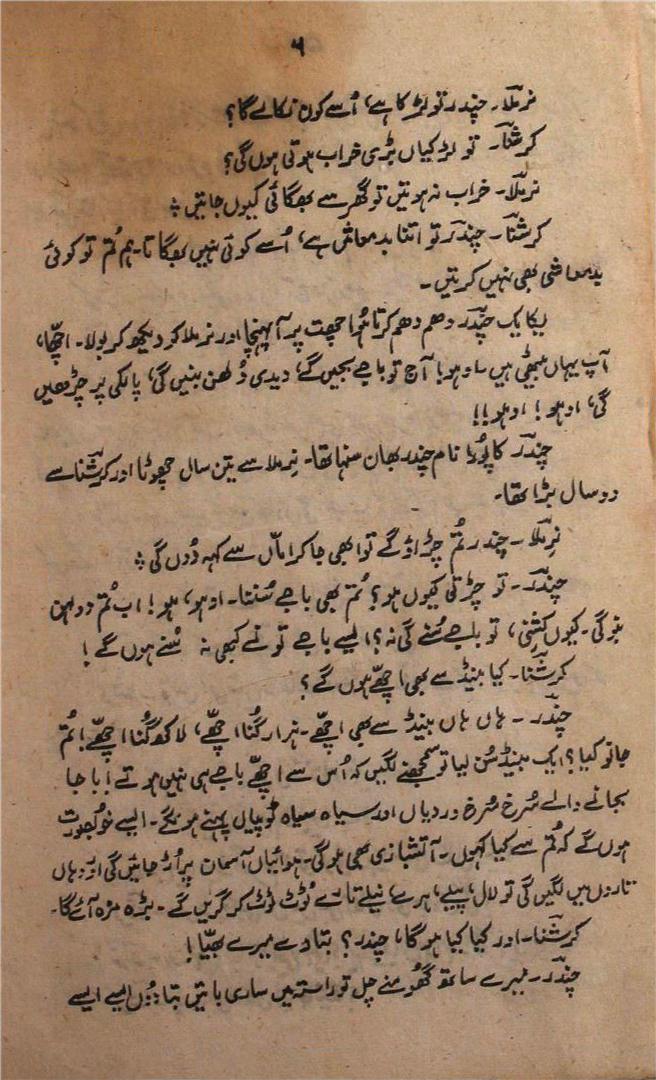 ۶
نرملا۔ چندر تو لڑکا ہے، اُسے کون نکالے گا؟
کرشنا۔ تو لڑکیاں بڑی خراب ہوتی ہوں گی؟
نرملا۔ خراب نہ ہوتیں تو گھر سے بھگائی کیوں جاتیں ؞
کرشنا۔ چندر تو اتنا بدمعاش ہے، اُسے کوئی نہیں بھگاتا۔ ہم تم تو کوئی
بدمعاشی بھی نہیں کرتیں۔
یکایک چندر دھم دھم کرتا ہُوا چھت پر آ پہنچا اور نرملا کو دیکھ کر بولا۔ اچھا،
آپ یہاں بیٹھی ہیں۔ اوہو! آج تو باجے بجیں گے، دیدی دُلھن بنیں گی، پالکی پر چڑھیں
گی، اوہو! اوہو!!
چندر کا پُورا نام چندر بھان سنہا تھا۔ نرملا سے تین سال چھوٹا اور کرشنا سے
دو سال بڑا تھا۔
نرملا۔ چندر تُم چڑاؤ گے تو ابھی جا کر اماں سے کہہ دُوں گی ؞
چندر۔ تو چڑتی کیوں ہو؟ تُم بھی باجے سُننا۔ اوہو، ہو! اب تُم دولہن
بنو گی۔ کیوں کِشنی، تو باجے سُنے گی نہ؟ ایسے باجے تو نے کبھی نہ سُنے ہوں گے!
کرشنا۔ کیا بینڈ سے بھی اچھے ہوں گے؟
چندر۔ ہاں ہاں بینڈ سے بھی اچھے۔ ہزار گُنا اچھے، لاکھ گُنا اچھے! تُم
جانو کیا؟ ایک بینڈ سُن لیا تو سمجھنے لگیں کہ اُس سے اچھے باجے ہی نہیں ہوتے! باجا
بجانے والے سُرخ سُرخ وردیاں اور سیاہ سیاہ ٹوپیاں پہنے ہونگے۔ ایسے خوبصورت
ہوں گے کہ تُم سے کیا کہوں۔ آتشبازی بھی ہوگی۔ ہوائیاں آسمان پر اُڑ جائیں گی اور وہاں
تاروں میں لگیں گی تو لال، پیلے، ہرے، نیلے تارے ٹوٹ ٹوٹ کر گریں گے۔ بڑا مزہ آئے گا۔
کرشنا۔ اور کیا کیا ہوگا، چندر؟ بتا دے میرے بھیّا!
چندر۔ میرے ساتھ گھومنے چل تو راستہ میں ساری باتیں بتا دُوں ایسے ایسے